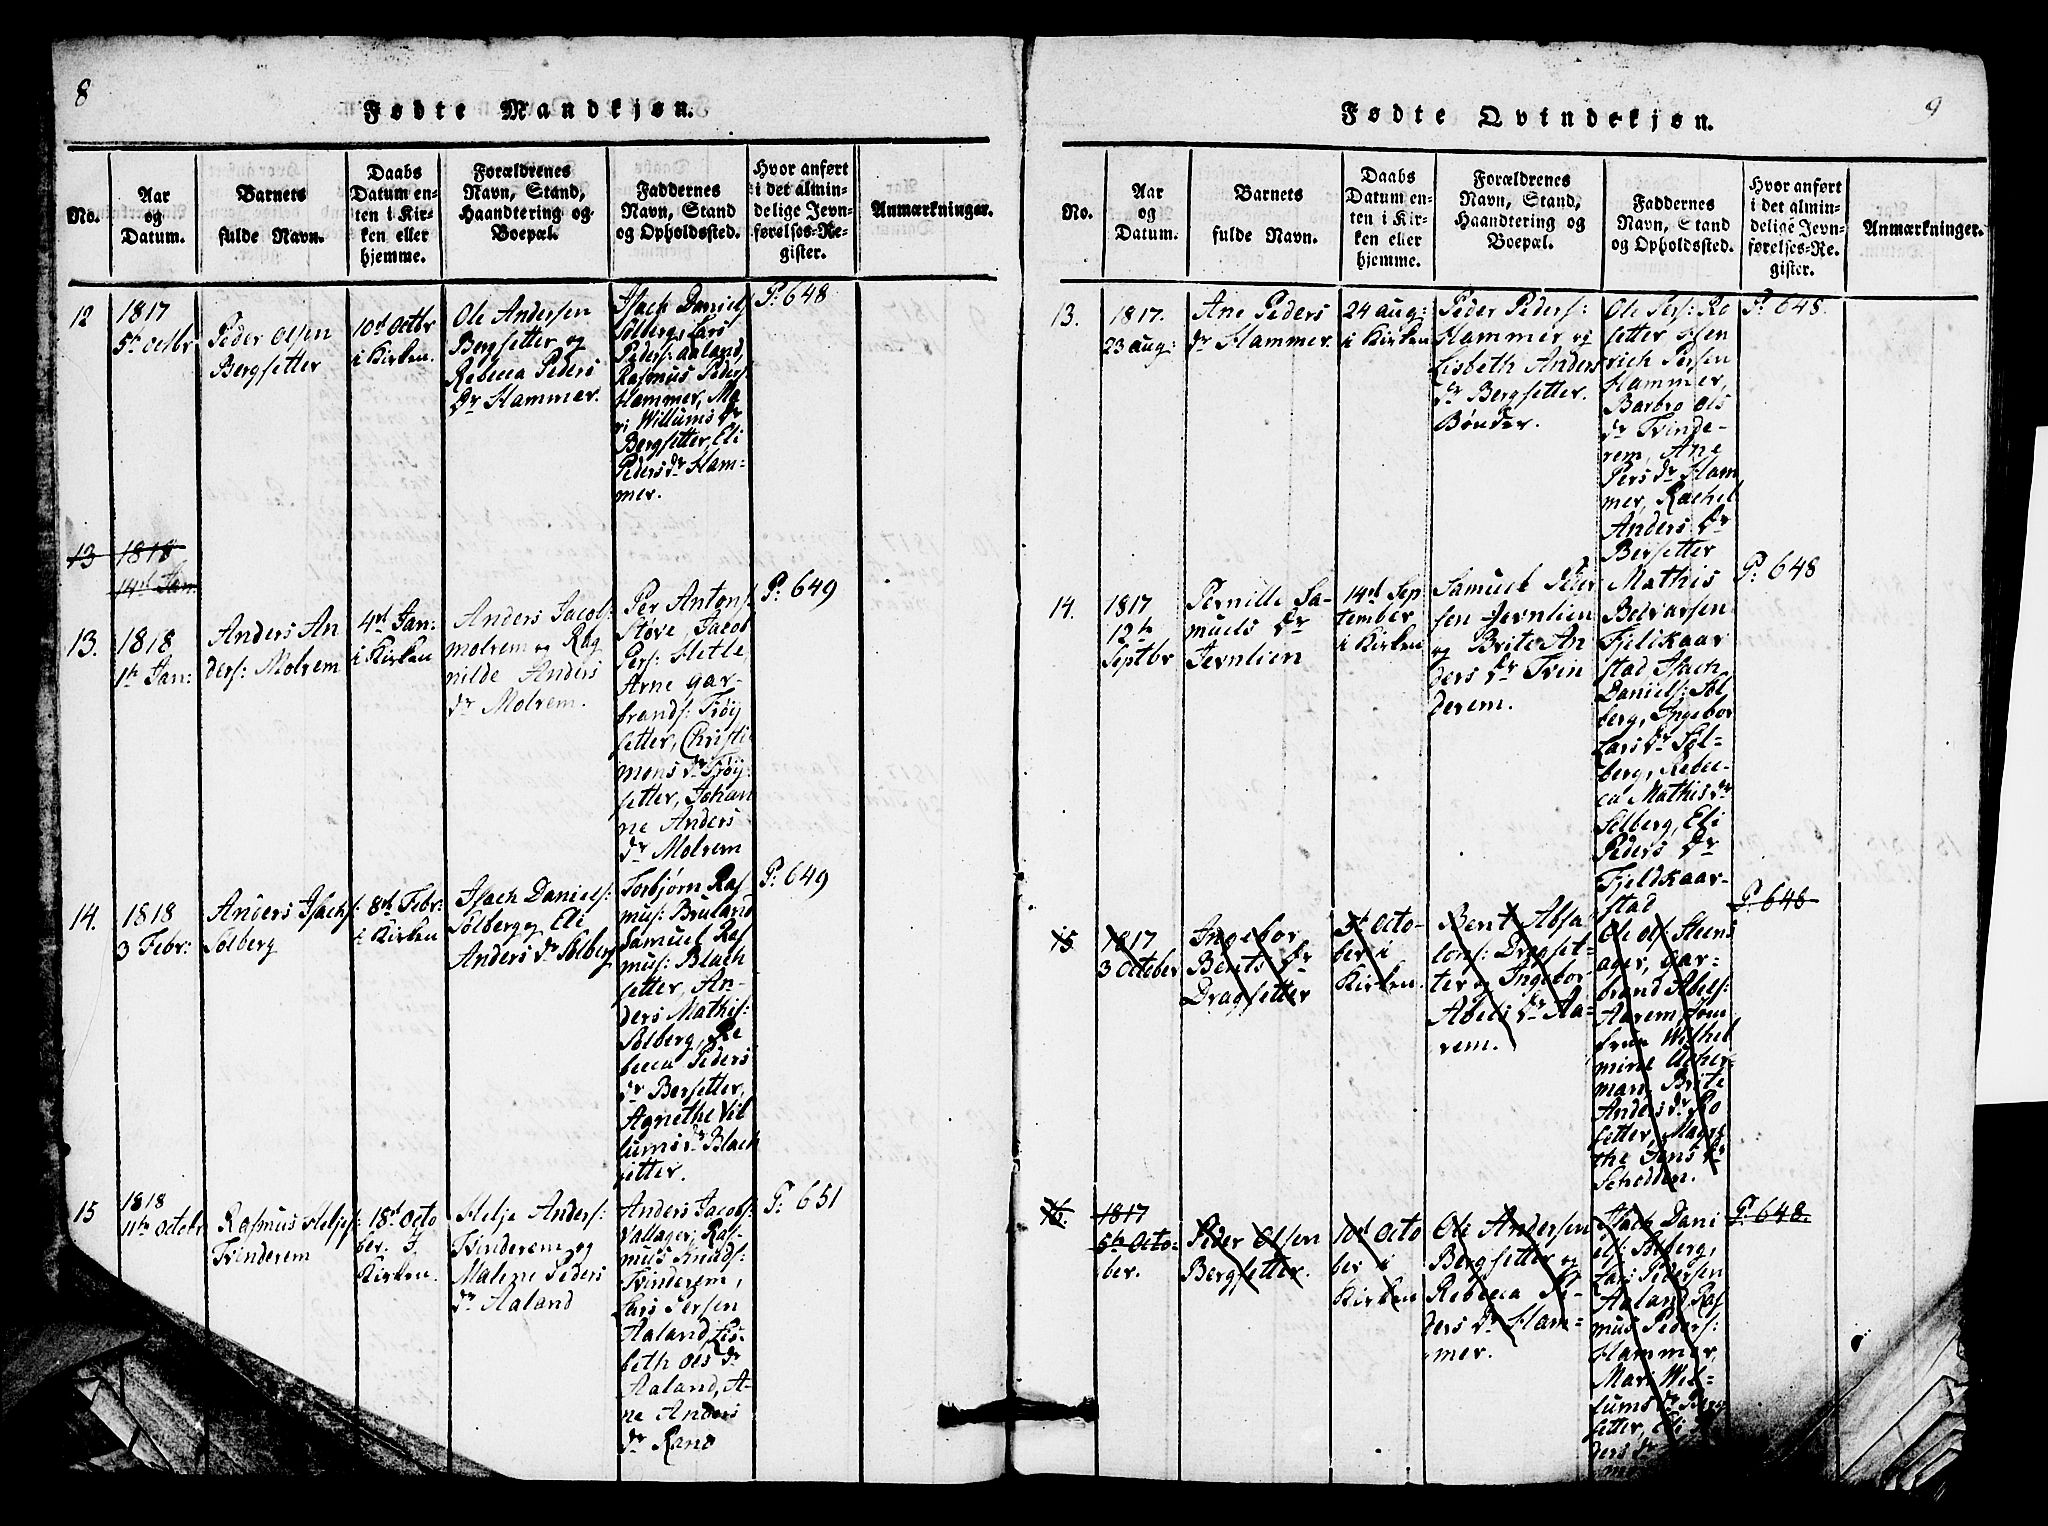 8
Fødte Mandkjøn.
No.
Aar
og
Datum.
Barnets
fulde Navn.
Daabs
Datum en-
ten i Kir-
ken eller
hjemme.
Forældrenes
Navn, Stand,
Haandtering og
Boepæl.
Faddernes
Navn, Stand
og Opholdssted.
Hvor anført
i det almin-
delige Jevn-
førelses-Re-
gister.
Anmærkninger.
12
1817
5te Octbr
Peder Olsen
Bergsetter
10d Octbr
i Kirken.
Ole Andersen
Bergsetter og
Rebecca Peders
Dr Hammer.
Isach Daniels
Solberg, Lars
Peders: Aaland,
Rasmus Peders
Hammer, Ma
ri Willums Dr
Bergsetter, Eli
Peders Dr Ham=
mer.
P: 648
13
1818
14d Jan:
13.
1818
1te Jan:
Anders An
ders: Molrem
4d Jan:
i Kirken
Anders Jacobs:
Molrem og Rag
nilde Anders
Dr Molrem.
Per Antons:
Støve, Jacob
Pers: Hetle,
Arne Gar-
brands: Trøy
setter, Christi
Mons Dr Trøy-
setter, Johan
ne Anders
Dr Molrem
P: 649
14.
1818
3 Febr:
Anders Isachs:
Solberg
8de Febr:
i Kirken
Isach Daniels:
Solberg og Eli
Anders Dr Solberg
Torbjørn Ras
mus: Bruland
Samuel Ras
mus: Blach
setter, An-
ders Mathis:
Solberg, Re
becca Peders
Dr Bersetter,
Agnethe Vil
lums Dr Blach
setter.
P: 649
15
1818
11te Octobr
Rasmus Heljes:
Tvinderem
18d Octo
ber: I.
Kirken.
Helje Anders:
Tvinderem og
Malene Peders
Dr Aaland
Anders Jacobs:
Vallager, Ras
mus Knuds:
Tvinderem,
Lars Persen
Aaland, Lis-
beth Ols Dr
Aaland, A-
ne Anders
Dr Rand
P: 651
9
Fødte Qvindekjøn.
No.
Aar
og
Datum.
Barnets
fulde Navn.
Daabs
Datum en-
ten i Kir-
ken eller
hjemme.
Forældrenes
Navn, Stand,
Haandtering og
Boepæl.
Faddernes
Navn, Stand
og Opholdssted.
Hvor anført
i det almin-
delige Jevn-
førelses-Re-
gister.
Anmærkninger.
13.
1817.
23 aug:
Ane Peders
Dr Hammer.
24 aug:
i Kirken
Peder Peders:
Hammer og
Lisbeth Anders
Dr Bergsetter.
Bønder.
Ole Pers: Ro
setter Hen
rich Persen
Hammer,
Barbro Ols
Dr Tvinde-
rem, Ane
Pers Dr Ham
mer, Rachel
Anders Dr
Bersetter
P: 648.
14.
1817
12te
Septbr
Pernille Sa-
muels Dr
Jernlien
14d Sep
tember
i Kirken
Samuel Peder
sen Jernlien
og Brite An
ders Dr Tvin
derem.
Mathis
Belvarsen
Fjeldkaar
stad Isach
Daniels: Sol
berg, Ingebor
Lars Dr Sol-
berg, Rebec-
ca Mathis Dr
Solberg, Eli
Peders Dr
Fjeldkaar-
stad
P: 648
15
1817
3 October
Ingebor
Bents Dr
Dragsetter
5te Octo-
ber i
Kirken.
Bent Absa
lons: Dragset-
ter og Ingebor
Abels Dr Aa-
rem.
Ole Ols: Steens
ager, Gar-
brand Abels:
Aarem, Jom
frue Wilhel
mine Ucher-
man, Brite
Anders Dr Ro
setter, Magre
the Jens Dr
Schedden.
P: 646
16.
1817
5te Octo-
ber.
Peder Olsen
Bergsetter.
10d Octo
ber i
Kirken
Ole Andersen
Bergsetter og
Rebecca Pe-
ders Dr Ham=
mer.
Isach Dani
els: Solberg,
Lars Pedersen
Aaland, Ras
mus Peders:
Hammer,
Mari Wil-
lums Dr Berg
setter, Eli Pe
ders Dr
P: 648.